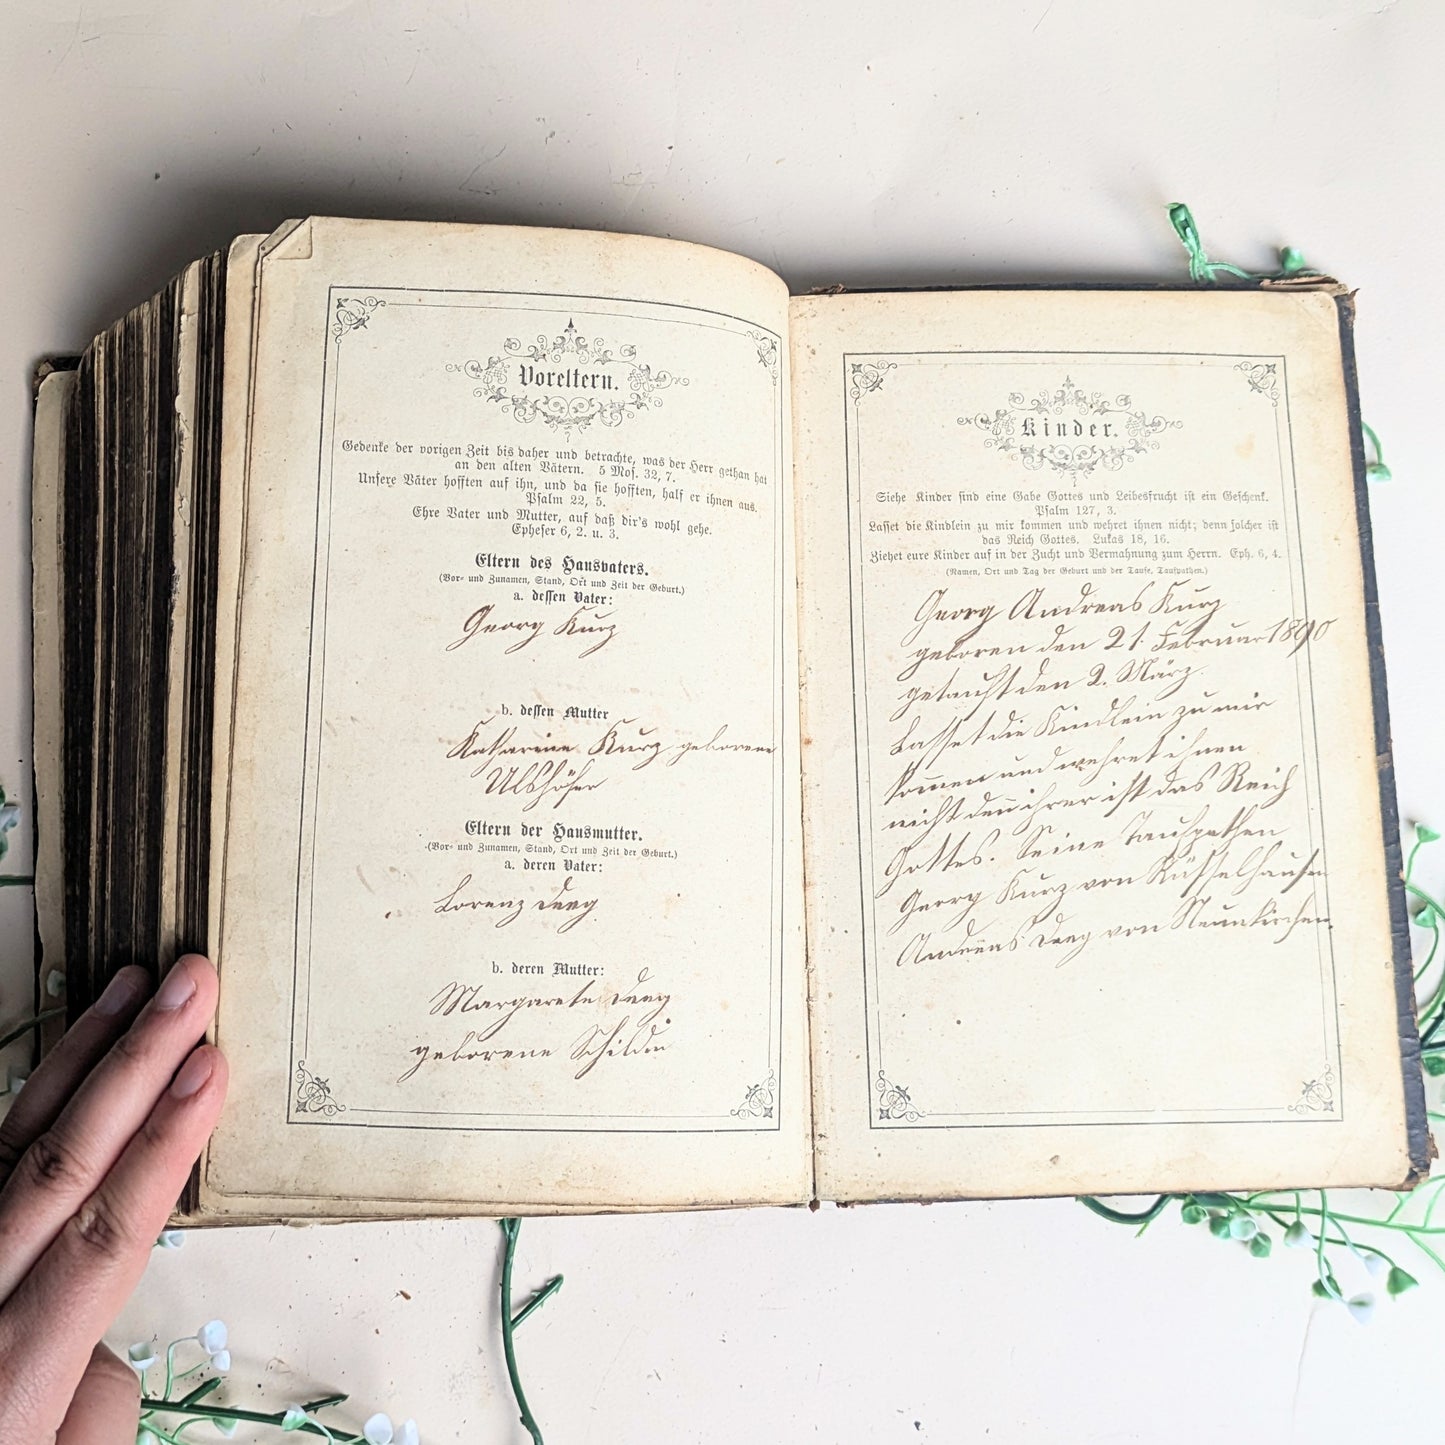 Voreltern.
Gedenke der vorigen Zeit bis daher und betrachte, was der Herr gethan hat
an den alten Vätern. 5 Mos. 32, 7.
Unsere Väter hofften auf ihn, und da sie hofften, half er ihnen aus.
Psalm 22, 5.
Ehre Vater und Mutter, auf daß dir's wohl gehe.
Epheser 6, 2. u. 3.
Eltern des Hausvaters.
(Vor- und Zunamen, Stand, Ort und Zeit der Geburt.)
a. dessen Vater:
Georg Kurz
b. dessen Mutter
Katharine Kurz geborene
Ulshöfer
Eltern der Hausmutter.
(Vor- und Zunamen, Stand, Ort und Zeit der Geburt.)
a. deren Vater:
Lorenz Deeg
b. deren Mutter:
Margarete Deeg
geborene Schildin
Kinder.
Siehe Kinder sind eine Gabe Gottes und Leibesfrucht ist ein Geschenk.
Psalm 127, 3.
Lasset die Kindlein zu mir kommen und wehret ihnen nicht; denn solcher ist
das Reich Gottes. Lukas 18, 16.
Ziehet eure Kinder auf in der Zucht und Vermahnung zum Herrn. Eph. 6, 4.
(Namen, Ort und Tag der Geburt und der Taufe, Taufpathen.)
Georg Andreas Kurz
geboren den 21. Februar 1890
getauft den 2. März.
Lasset die Kindlein zu mir
kom̄en und wehret ihnen
nicht den̄ ihrer ist das Reich
Gottes. Seine Taufpathen
Georg Kurz von Rüsselhausen
Andreas Deeg von Neunkirchen.